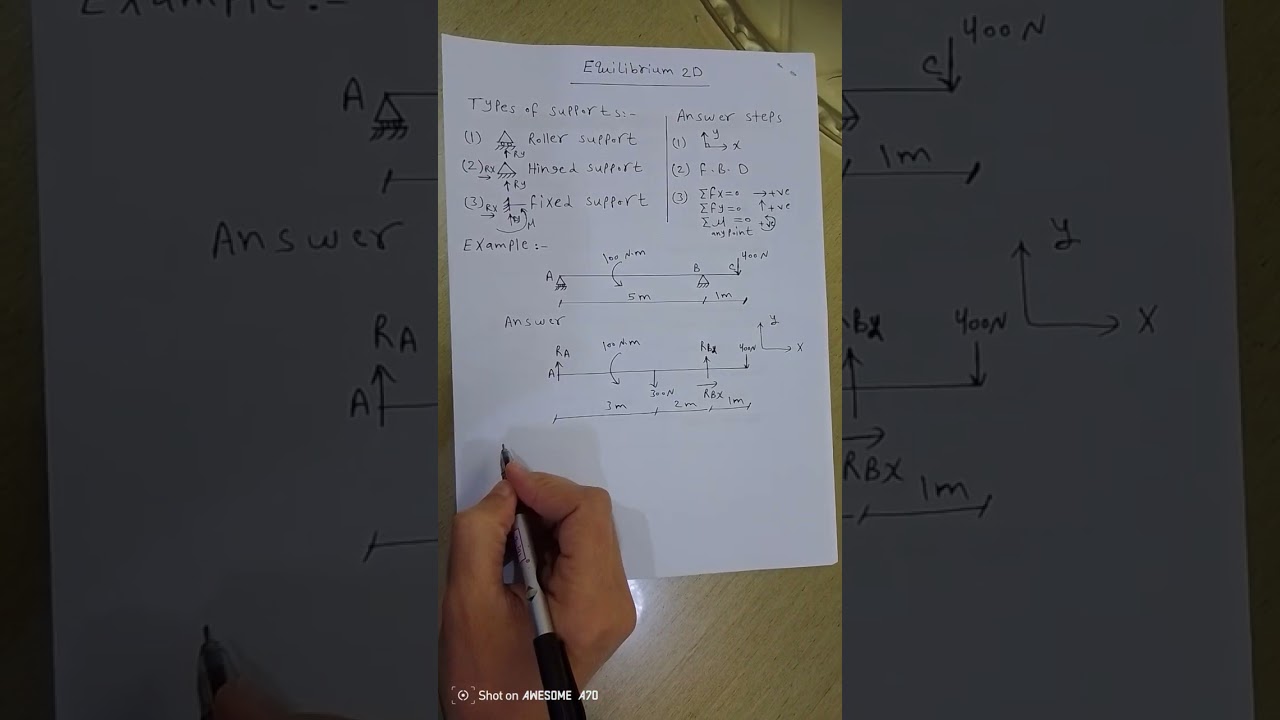 Equilibrium 2D
Types of supports:-
(1) Roller support
Ry
(2) Rx Hinged support
Ry
(3) Rx fixed support
Ry M
Answer steps
(1) y x
(2) F.B.D
(3) Σfx=0 → +ve
Σfy=0 ↑ +ve
ΣM =0 +ve
any point
Example:-
100 N.m
400N
A B C
5m 1m
Answer
y
x
RA 100 N.m 400N
A
300N RBX
3m 2m 1m
Shot on AWESOME A70
Example:-
A
Answer
RA
A
400N
C
1m
y
x
400N
RBX
1m